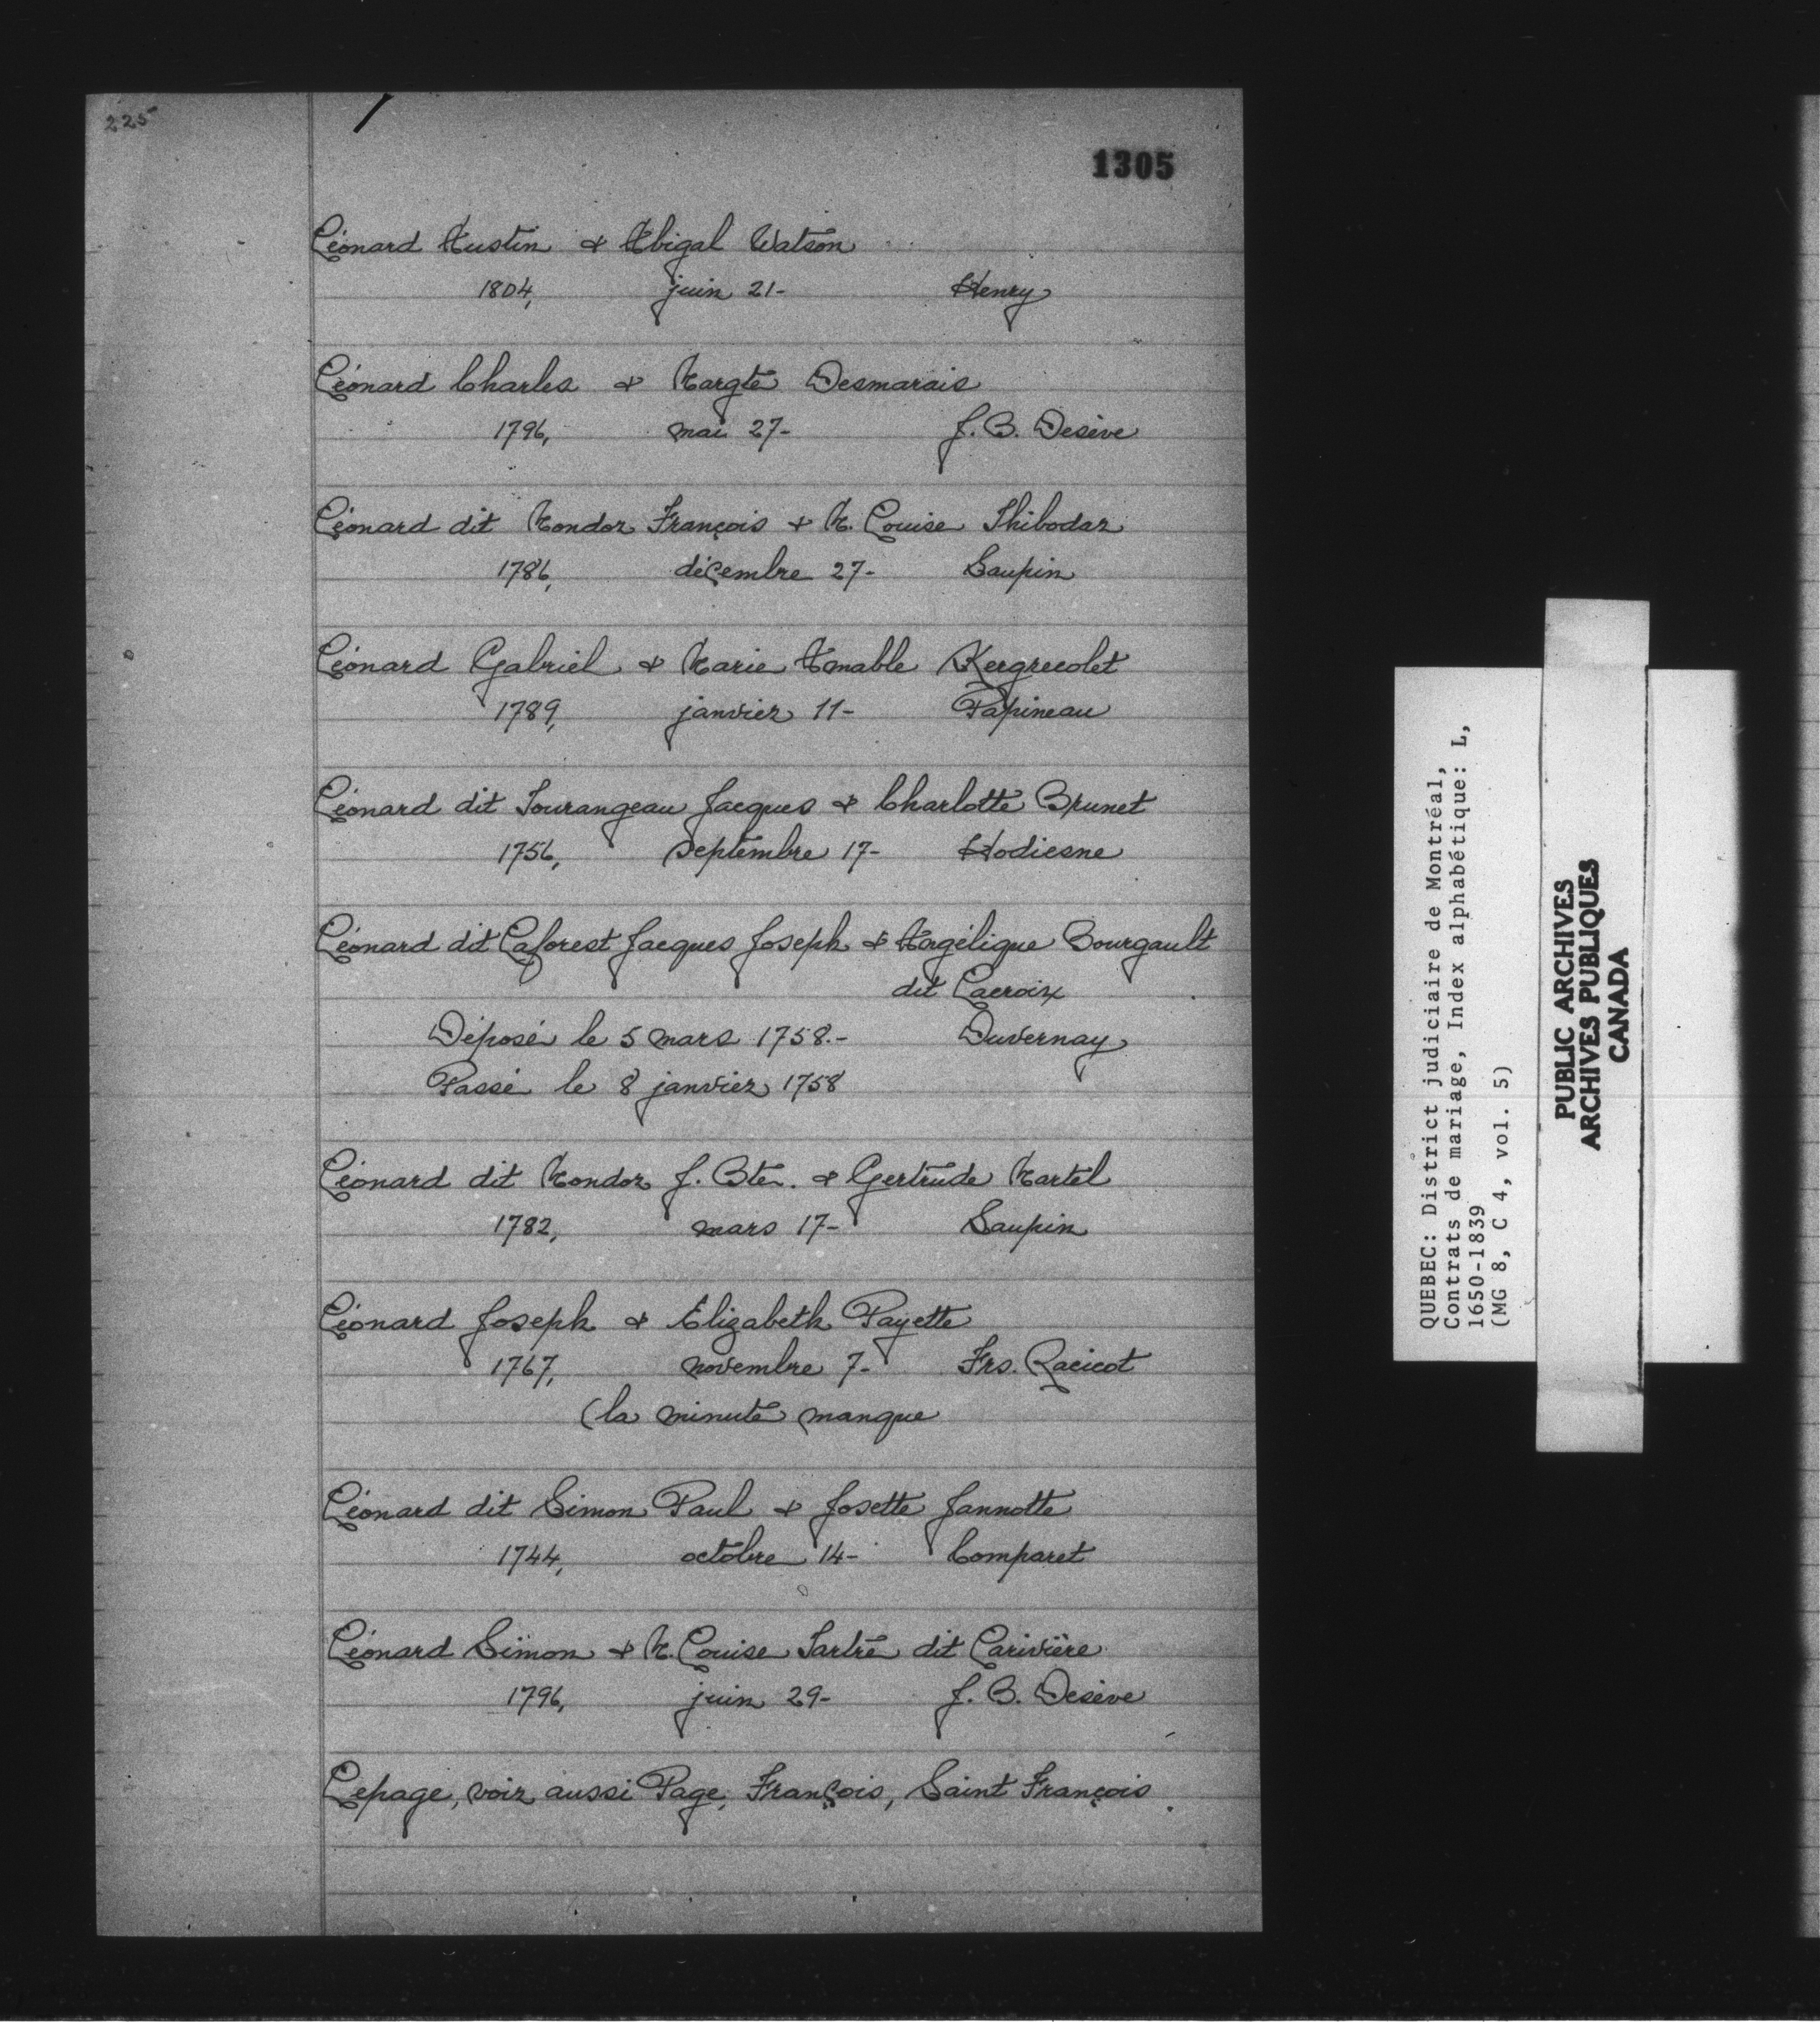 225
1305
Léonard Austin & Abigal Watson
1804, juin 21- Henry
Léonard Charles & Margte Desmarais
1796, mai 27- J. B. Desève
Léonard dit Mondor François & M. Louise Thibodar
1786, décembre 27- Saupin
Léonard Gabriel & Marie Amable Kergrecolet
1789, janvier 11- Papineau
Léonard dit Tourangeau Jacques & Charlotte Brunet
1756, septembre 17- Hodiesne
Léonard dit Laforest Jacques Joseph & Angélique Bourgault
dit Lacroix
Déposé le 5 mars 1758.- Duvernay
Passé le 8 janvier 1758
Léonard dit Mondor J. Bte. & Gertrude Martel
1782, mars 17- Saupin
Léonard Joseph & Elizabeth Payette
1767, novembre 7- Frs. Racicot
(la minute manque
Léonard dit Simon Paul & Josette Jannotte
1744, octobre 14- Comparet
Léonard Simon & M. Louise Sartre dit Larivière
1796, juin 29- J. B. Desève
Lepage, voir aussi Page, François, Saint François.
QUEBEC: District judiciaire de Montréal,
Contrats de mariage, Index alphabétique: L,
1650-1839
(MG 8, C 4, vol. 5)
PUBLIC ARCHIVES
ARCHIVES PUBLIQUES
CANADA